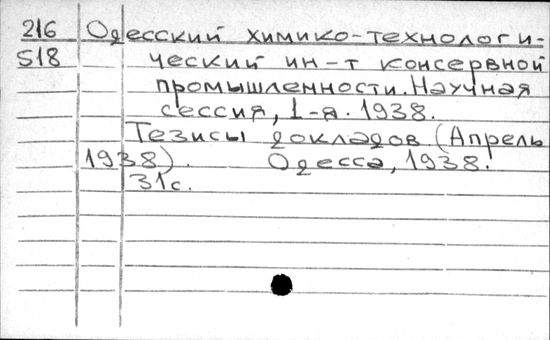 216 Одесский химико-технологи-
518 ческий ин-т консервной
промышленности. Научная
сессия, 1-я. 1938.
Тезисы докладов. (Апрель
1938). Одесса, 1938.
31с.